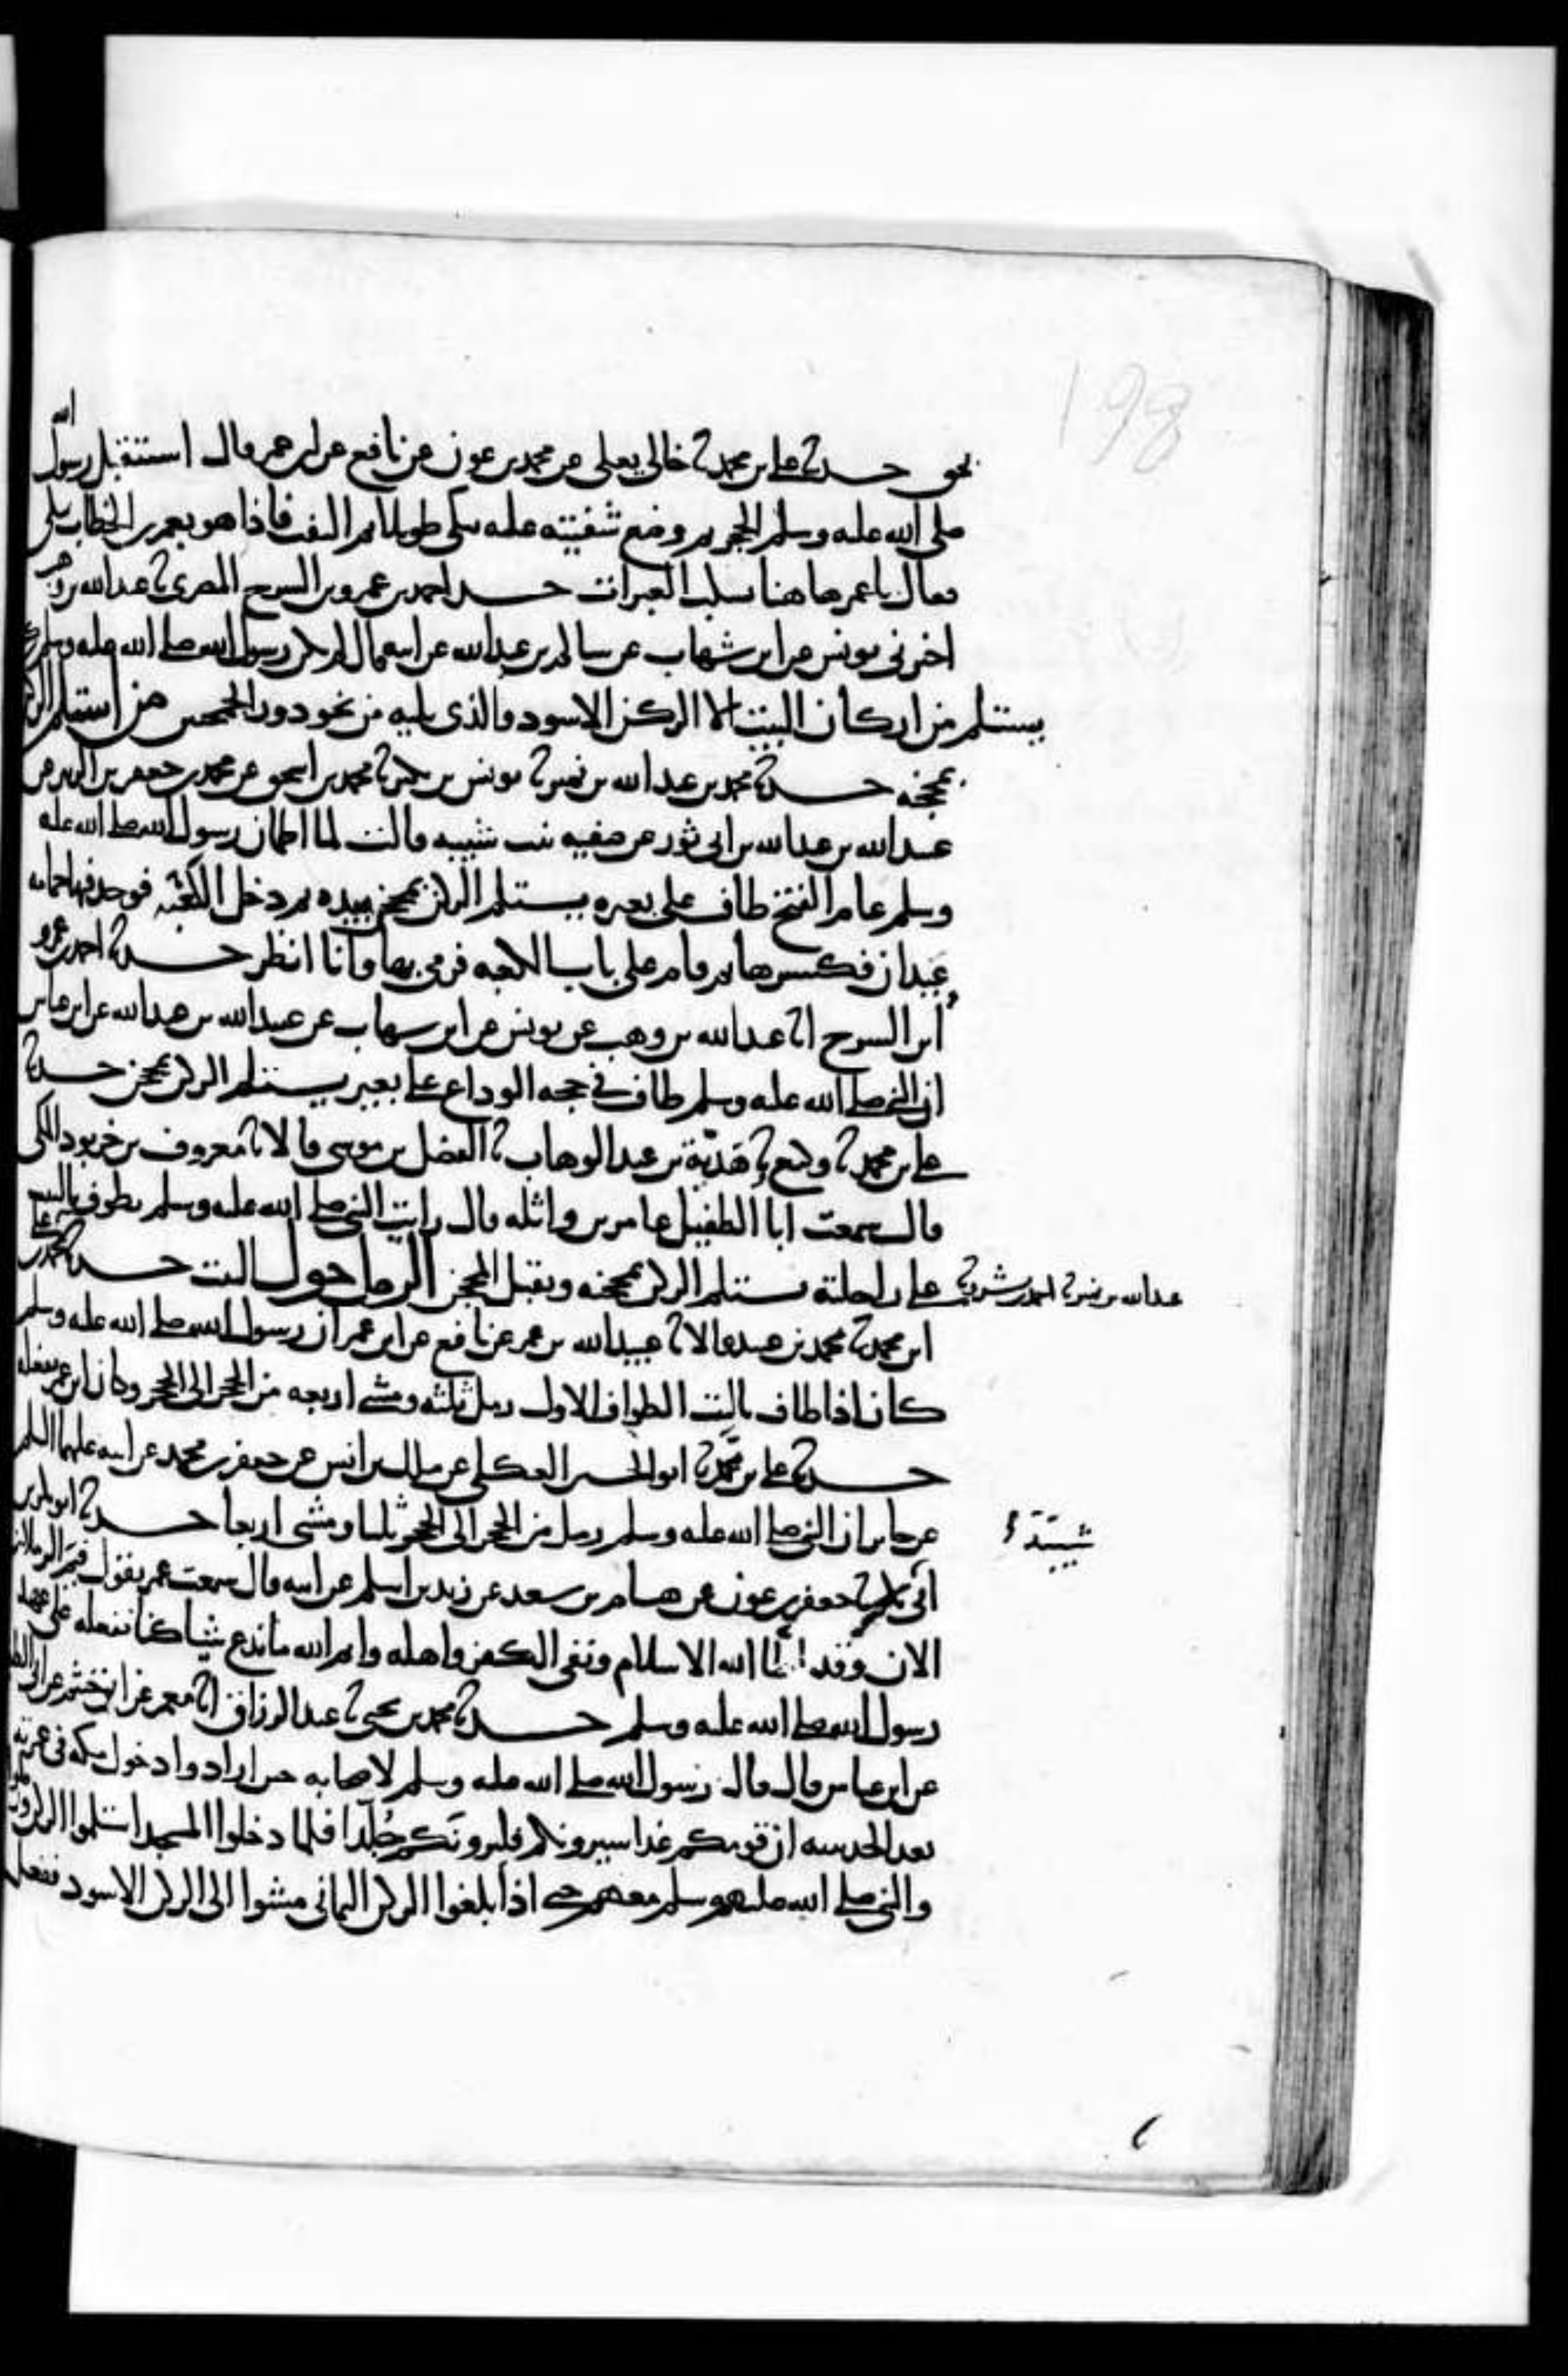 198
بحق حدثنا علي بن محمد ثنا خالي يعلى عن محمد بن عون عن نافع عن ابن عمر قال استقبل رسول الله
صلى الله عليه وسلم الحجر ثم وضع شفتيه عليه يبكي طويلا ثم التفت فاذا هو بعمر بن الخطاب يبكي
فقال يا عمر هاهنا تسكب العبرات حدثنا احمد بن عمرو بن السرح المصري ثنا عبد الله بن وهب
اخبرني يونس عن ابن شهاب عن سالم بن عبد الله عن ابيه قال لم يكن رسول الله صلى الله عليه وسلم
يستلم من اركان البيت الا الركن الاسود والذي يليه من نحو دور الجمحيين من استلم الركن
بمحجنه حدثنا محمد بن عبد الله بن نمير ثنا يونس بن بكير ثنا محمد بن اسحق عن محمد بن جعفر بن الزبير عن
عبيد الله بن عبد الله بن ابي ثور عن صفيه بنت شيبه قالت لما اطمان رسول الله صلى الله عليه
وسلم عام الفتح طاف على بعيره يستلم الركن بمحجن بيده ثم دخل الكعبه فوجد فيها حمامه
عيدان فكسرها ثم قام على باب الكعبه فرمى بها وانا انظر حدثنا احمد بن عمرو
ابن السرح انا عبد الله بن وهب عن يونس عن ابن شهاب عن عبيد الله بن عبد الله عن ابن عباس
ان النبي صلى الله عليه وسلم طاف في حجه الوداع على بعير يستلم الركن بمحجن حدثنا
علي بن محمد ثنا وكيع وثنا هدية بن عبد الوهاب ثنا الفضل بن موسى قالا ثنا معروف بن خربوذ المكي
قال سمعت ابا الطفيل عامر بن واثله قال رايت النبي صلى الله عليه وسلم يطوف بالبيت
على راحلته يستلم الركن بمحجنه ويقبل المحجن الرمل حول البيت حدثنا محمد بن
عبد الله بن نمير ثنا احمد بن بشير ثنا علي
ابن محمد ثنا محمد بن عبيد قالا ثنا عبيد الله بن عمر عن نافع عن ابن عمر ان رسول الله صلى الله عليه وسلم
كان اذا طاف بالبيت الطواف الاول رمل ثلثه ومشى اربعه من الحجر الى الحجر وكان ابن عمر يفعله
حدثنا علي بن محمد ثنا ابو الحسين العكلي عن مالك بن انس عن جعفر بن محمد عن ابيه عليهما السلم
عن جابر ان النبي صلى الله عليه وسلم رمل من الحجر الى الحجر ثلثا ومشى اربعا حدثنا ابو بكر بن
شيبة
ابي بكر ثنا جعفر بن عون عن هشام بن سعد عن زيد بن اسلم عن ابيه قال سمعت عمر يقول فيم الرملان
الان وقد اطا الله الاسلام ونفى الكفر واهله وايم الله ما ندع شيا كنا نفعله على عهد
رسول الله صلى الله عليه وسلم حدثنا محمد بن يحيى ثنا عبد الرزاق انا معمر عن ابن خثيم عن ابي الطفيل
عن ابن عباس قال قال رسول الله صلى الله عليه وسلم لاصحابه حين ارادوا دخول مكه في عمرته
بعد الحديبيه ان قومكم غدا سيرونكم فليرونكم جلدا فلما دخلوا المسجد استلموا الركن ورملوا
والنبي صلى الله عليه وسلم معهم حتى اذا بلغوا الركن اليماني مشوا الى الركن الاسود ففعل